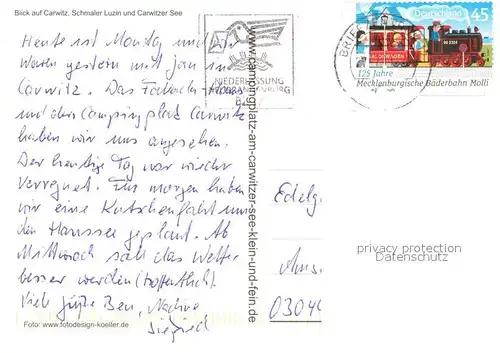 Blick auf Carwitz, Schmaler Luzin und Carwitzer See
Heute ist Montag und wir
waren gestern mit Jan in
Carwitz. Das Fallada-Haus
und den Campingplatz Carwitz
haben wir uns angesehen.
Der heutige Tag war wieder
verregnet. Für morgen haben
wir eine Kutschenfahrt um
den Haussee geplant. Ab
Mittwoch soll das Wetter
besser werden (hoffentlich).
Viele Grüße
Siegfried
Foto: www.fotodesign-koeller.de
www.campingplatz-am-carwitzer-see-klein-und-fein.de
NIEDERLASSUNG
BRIEF
Deutschland 45
125 Jahre
Mecklenburgische Bäderbahn Molli
privacy protection
Datenschutz
0304